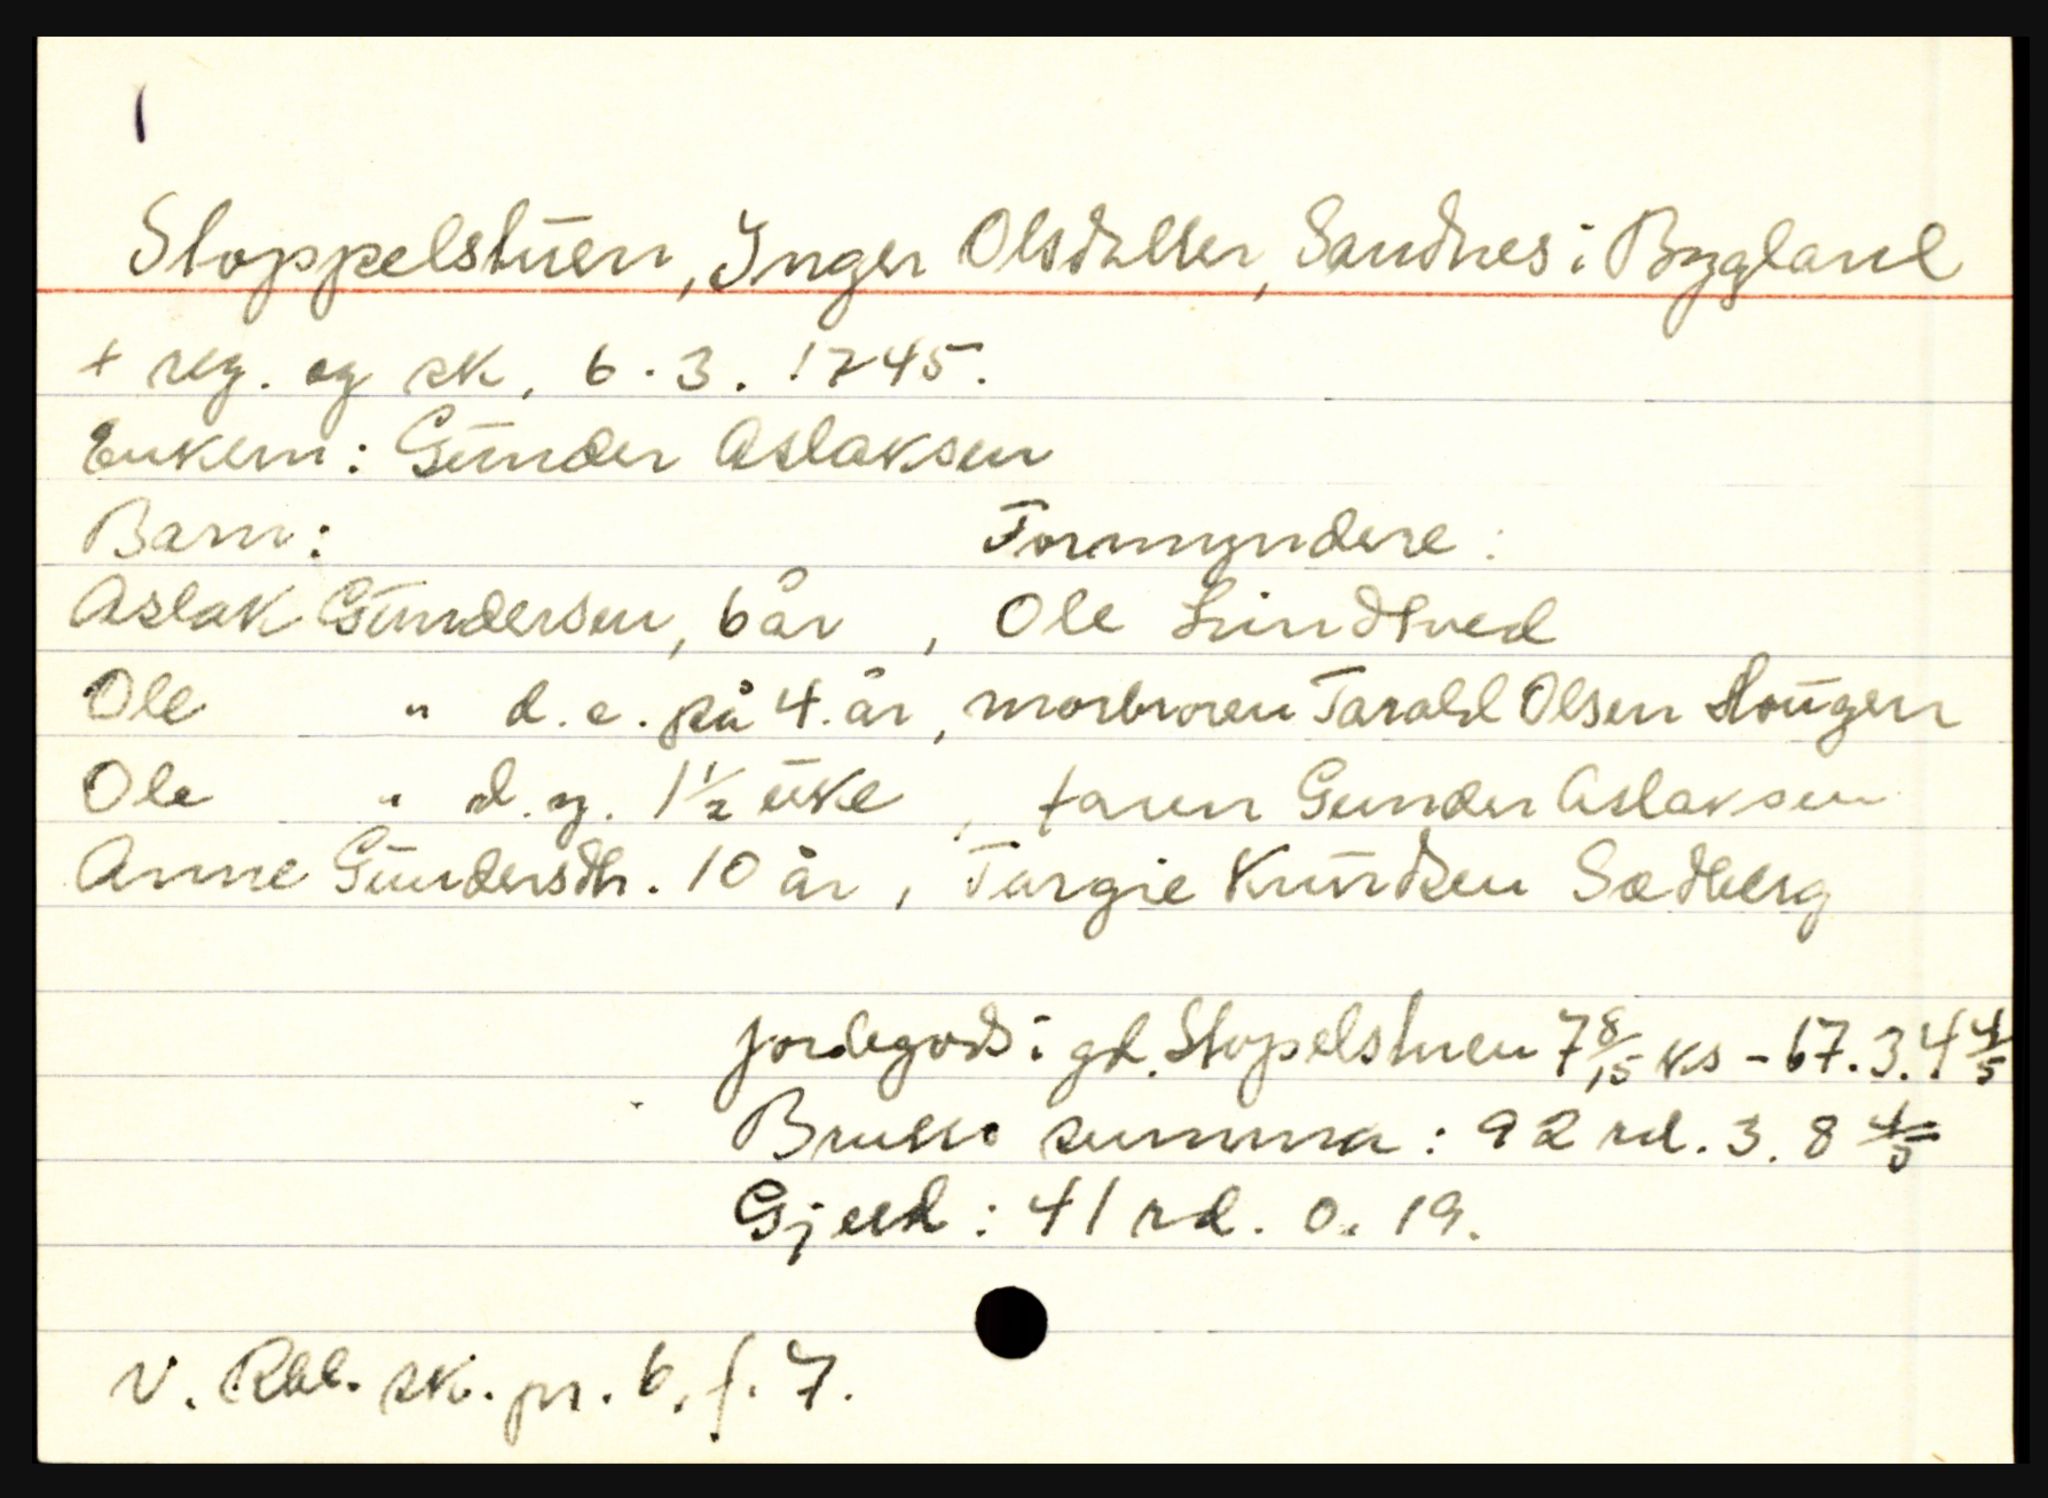 1
Stoppelstuen, Inger Olsdatter, Sandnes i Bygland
+ reg. og sk. 6.3.1745.
Enkem: Gunder Aslaksen
Barn: Formyndere:
Aslak Gundersen, 6 år, Ole Lindtved
Ole " d.e. på 4. år, morbroren Tarald Olsen Hougen
Ole " d.y. 1½ uke, faren Gunder Aslaksen
Anne Gundersdtr. 10 år, Targie Knudsen Sædberg
Jordegods i gd. Stopelstuen 7 8/15 ks - 67.3.4 4/5
Brutto summa: 92 rd. 3. 8 4/5
Gjeld: 41 rd. 0. 19.
V. Rbl. sk. pr. 6, f. 7.